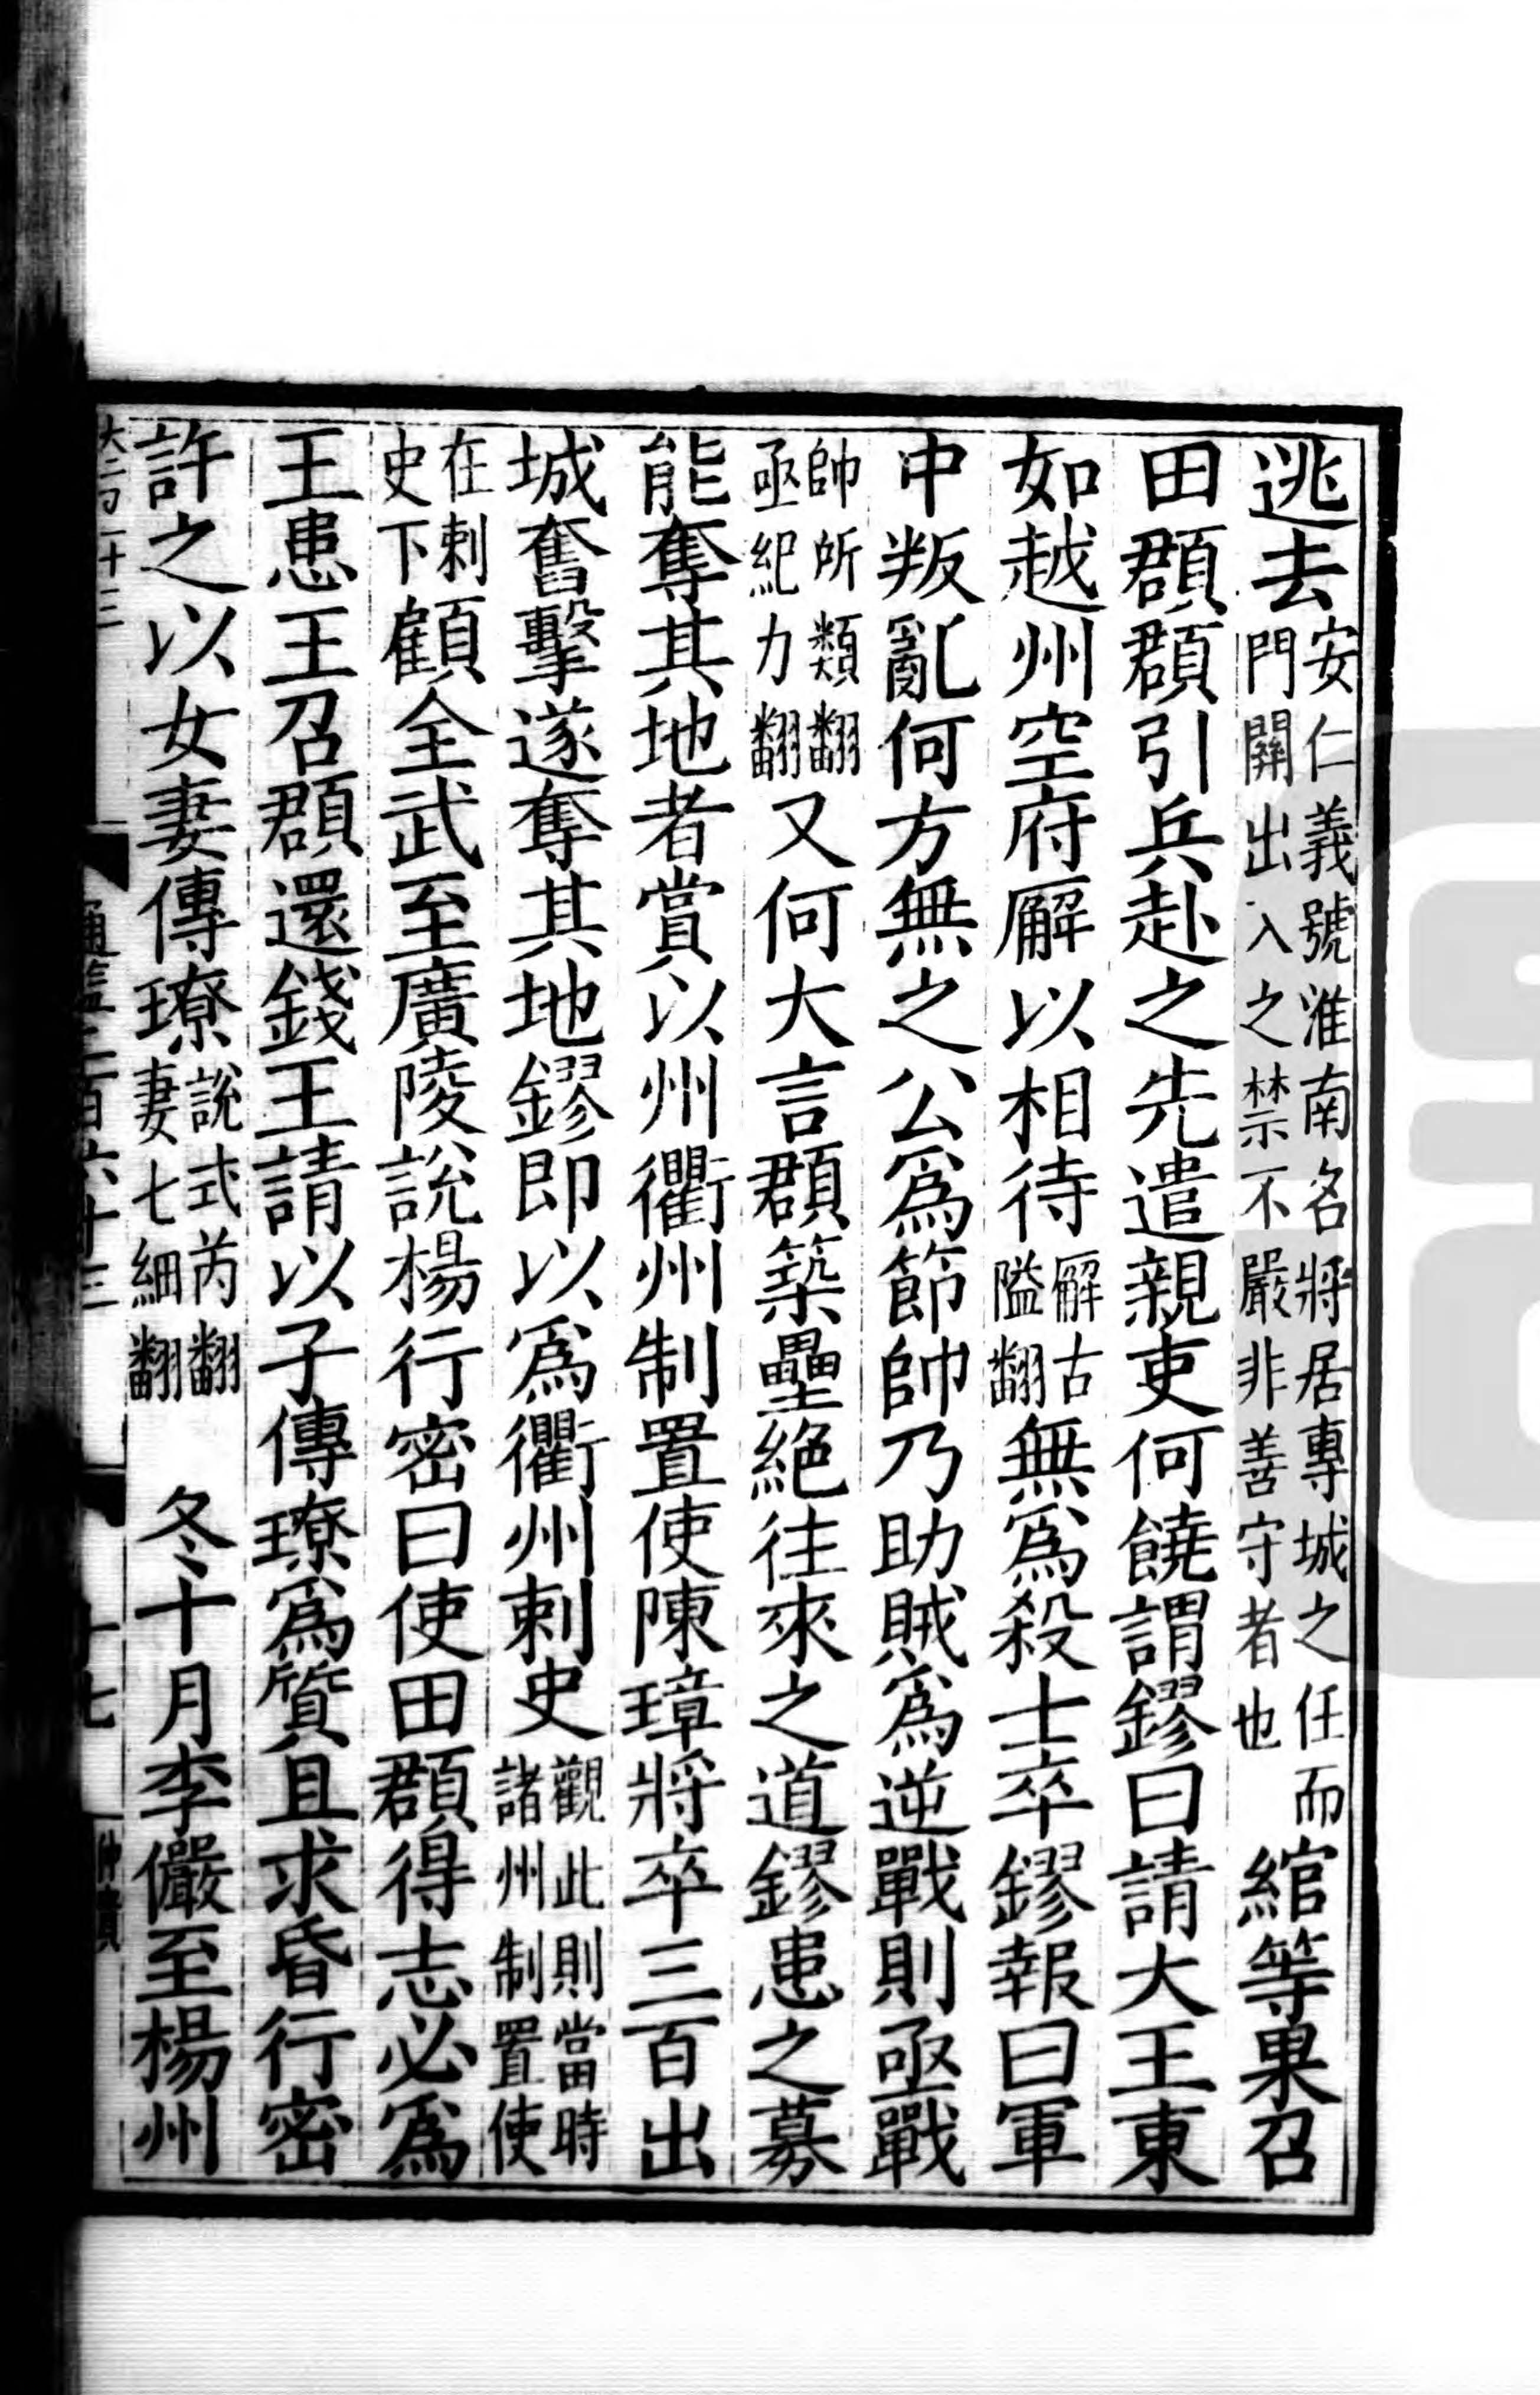 逃去安仁義號淮南名將居專城之任而門關出入之禁不嚴非善守者也綰等果召
田頵頵引兵赴之先遣親吏何饒謂鏐曰請大王東
如越州空府廨以相待廨古隘翻無爲殺士卒鏐報曰軍
中叛亂何方無之公爲節帥乃助賊爲逆戰則亟戰
帥所類翻亟紀力翻又何大言頵築壘絕往來之道鏐患之募
能奪其地者賞以州衢州制置使陳璋將卒三百出
城奮擊遂奪其地鏐即以爲衢州刺史觀此則當時諸州制置使
在刺史下顧全武至廣陵說楊行密曰使田頵得志必爲
王患王召頵還錢王請以子傳璙爲質且求昏行密
許之以女妻傳璙說式芮翻妻七細翻 冬十月李儼至楊州
通鑑二百六十三 十七